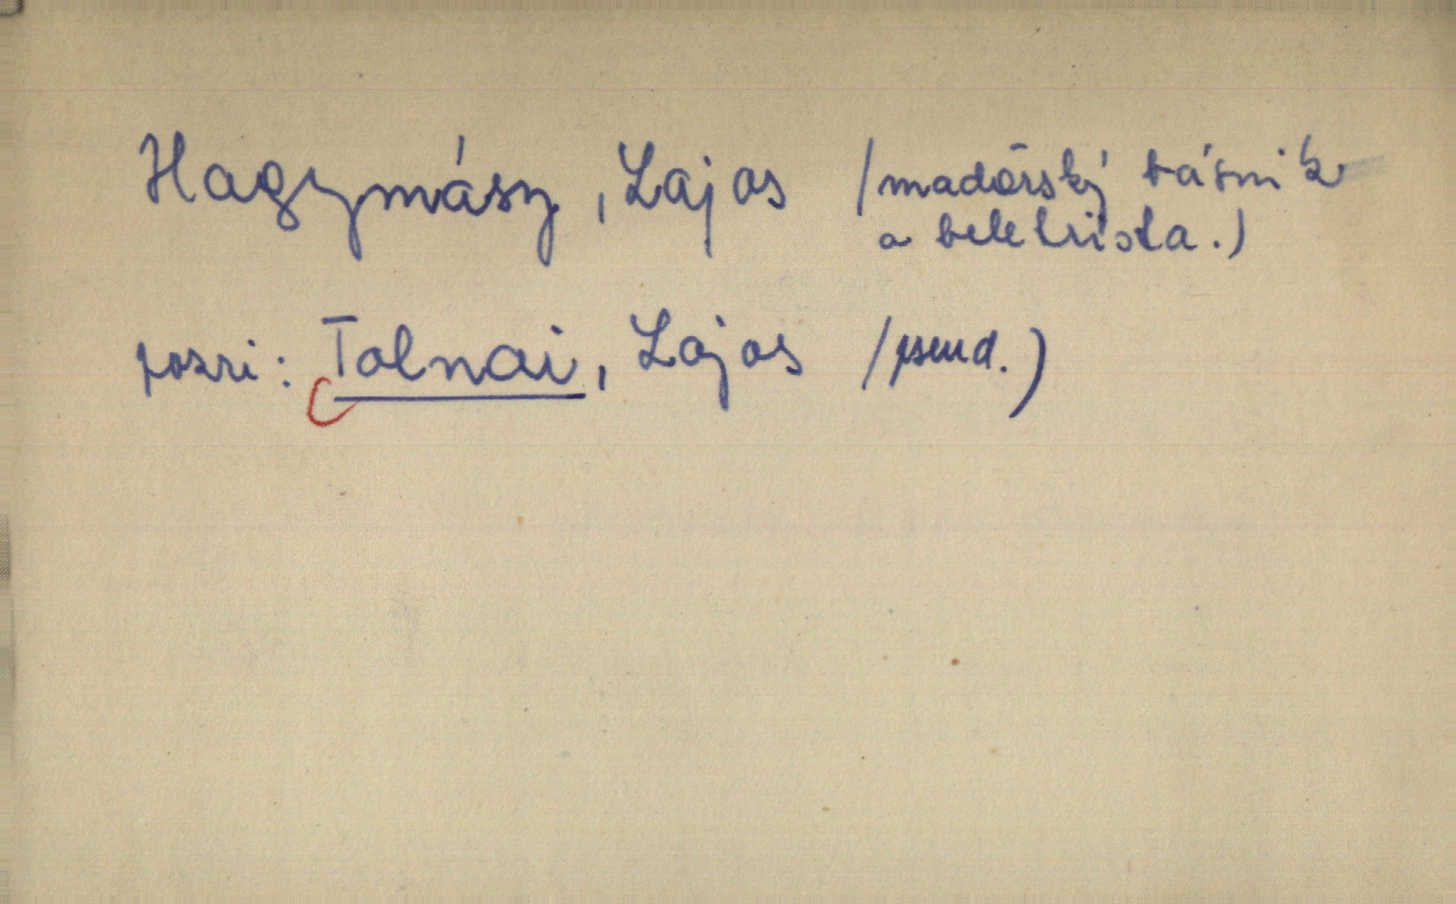 Hagymásy, Lajos /maďarský básnik
a beletrista.)
pozri: Tolnai, Lajos /pseud.)